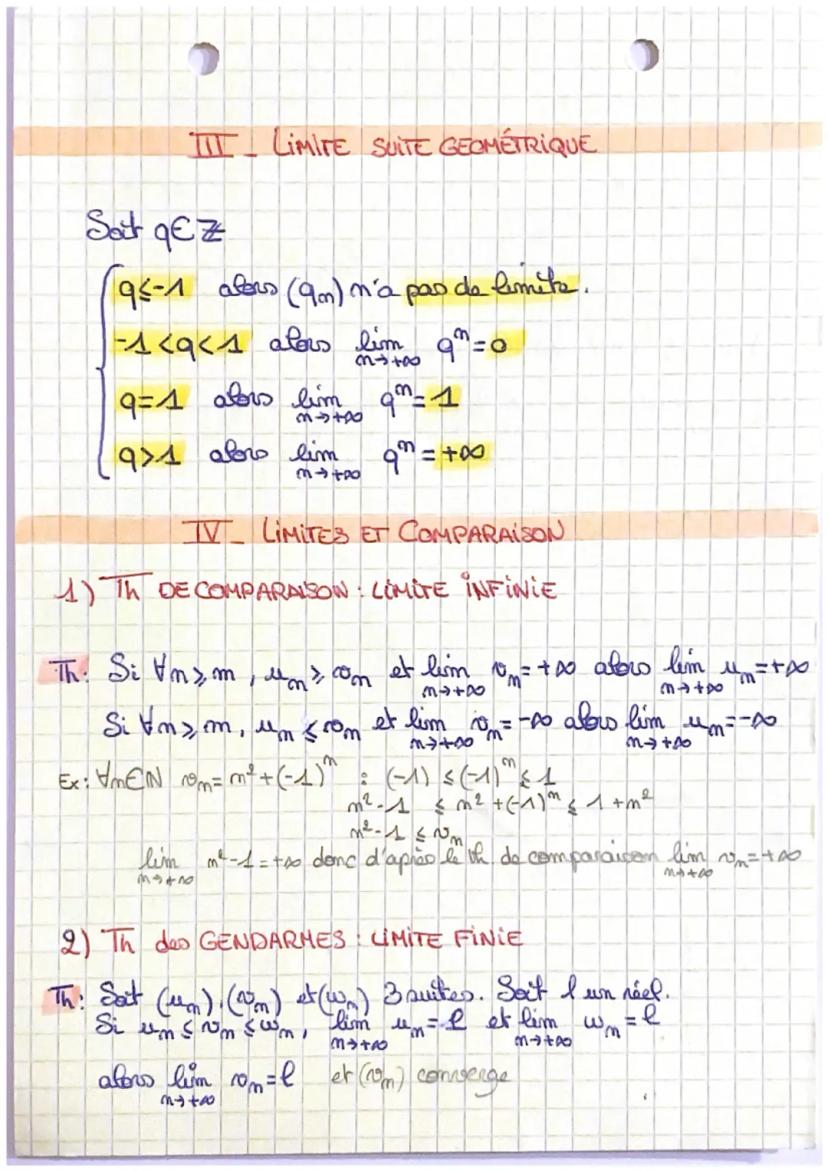 III - LIMITE SUITE GEOMÉTRIQUE
Soit q∈ℤ
q≤-1 alors (qn) n'a pas de limite.
-1<q<1 alors lim n→+∞ qⁿ=0
q=1 alors lim n→+∞ qⁿ=1
q>1 alors lim n→+∞ qⁿ=+∞
IV - LIMITES ET COMPARAISON
1) Th DE COMPARAISON : LIMITE INFINIE
Th: Si ∀n≥m, un≥vn et lim n→+∞ vn=+∞ alors lim n→+∞ un=+∞
Si ∀n≥m, un≤vn et lim n→+∞ vn=-∞ alors lim n→+∞ un=-∞
Ex: ∀n∈ℕ vn=n²+(-1)ⁿ : (-1)≤(-1)ⁿ≤1
n²-1 ≤ n²+(-1)ⁿ ≤ 1+n²
n²-1 ≤ vn
lim n→+∞ n²-1=+∞ donc d'après le th de comparaison lim n→+∞ vn=+∞
2) Th des GENDARMES : LIMITE FINIE
Th: Soit (un), (vn) et (wn) 3 suites. Soit l un réel.
Si un≤vn≤wn, lim n→+∞ un=l et lim n→+∞ wn=l
alors lim n→+∞ vn=l et (vn) converge